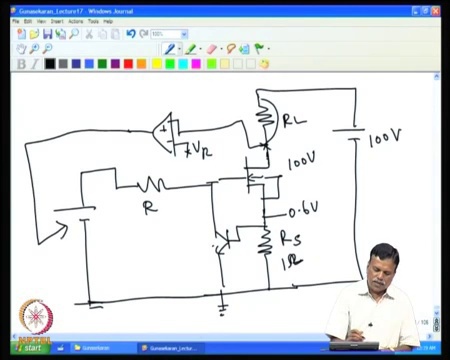 Gunasekaran_Lecture17 - Windows Journal
File Edit View Insert Actions Tools Help
B I
RL
+
VR
100V
100V
R
0.6V
RS
1Ω
start
Gunasekaran
Gunasekaran_Lectur...